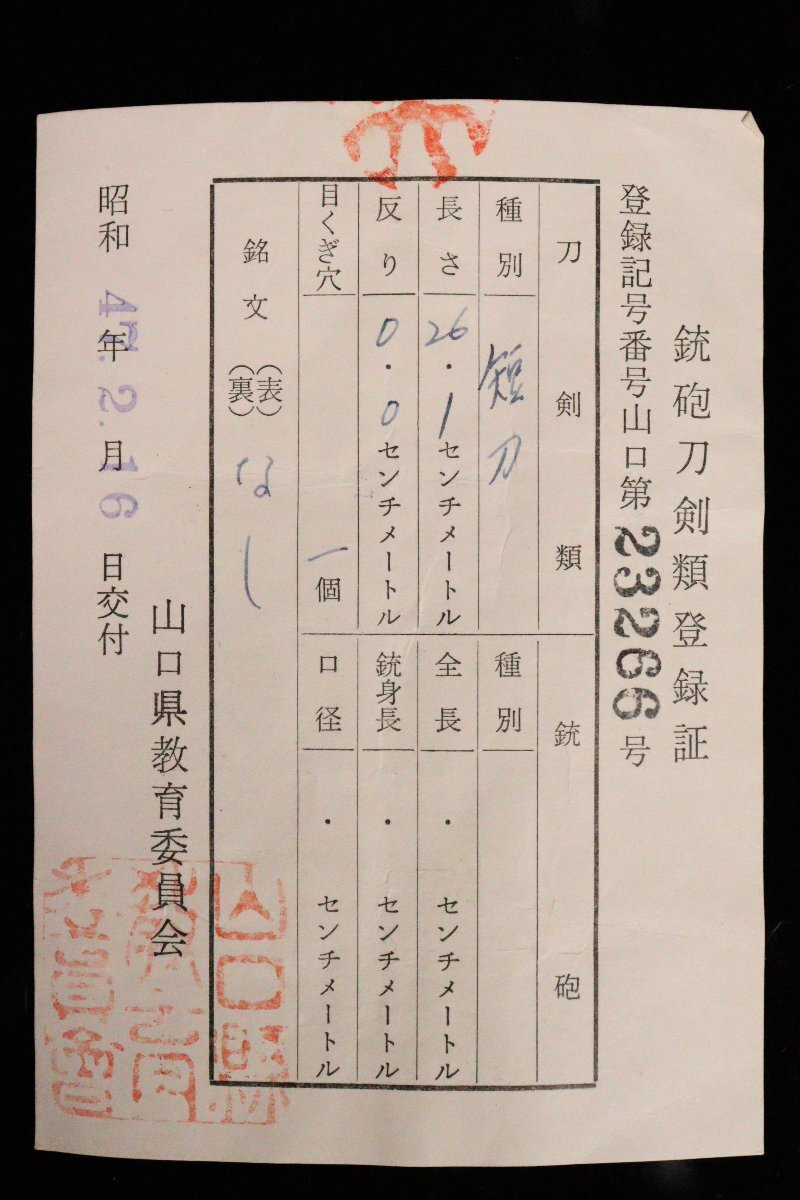 銃砲刀剣類登録証
登録記号番号山口第23266号
刀剣類
銃砲
種別 短刀
種別
長さ 26.1センチメートル
全長 ・ センチメートル
反り 0.0センチメートル
銃身長 ・ センチメートル
目くぎ穴 一個
口径 ・ センチメートル
銘文 (表)
(裏) なし
昭和47年2月16日交付
山口県教育委員会
山口縣
教育
委員會